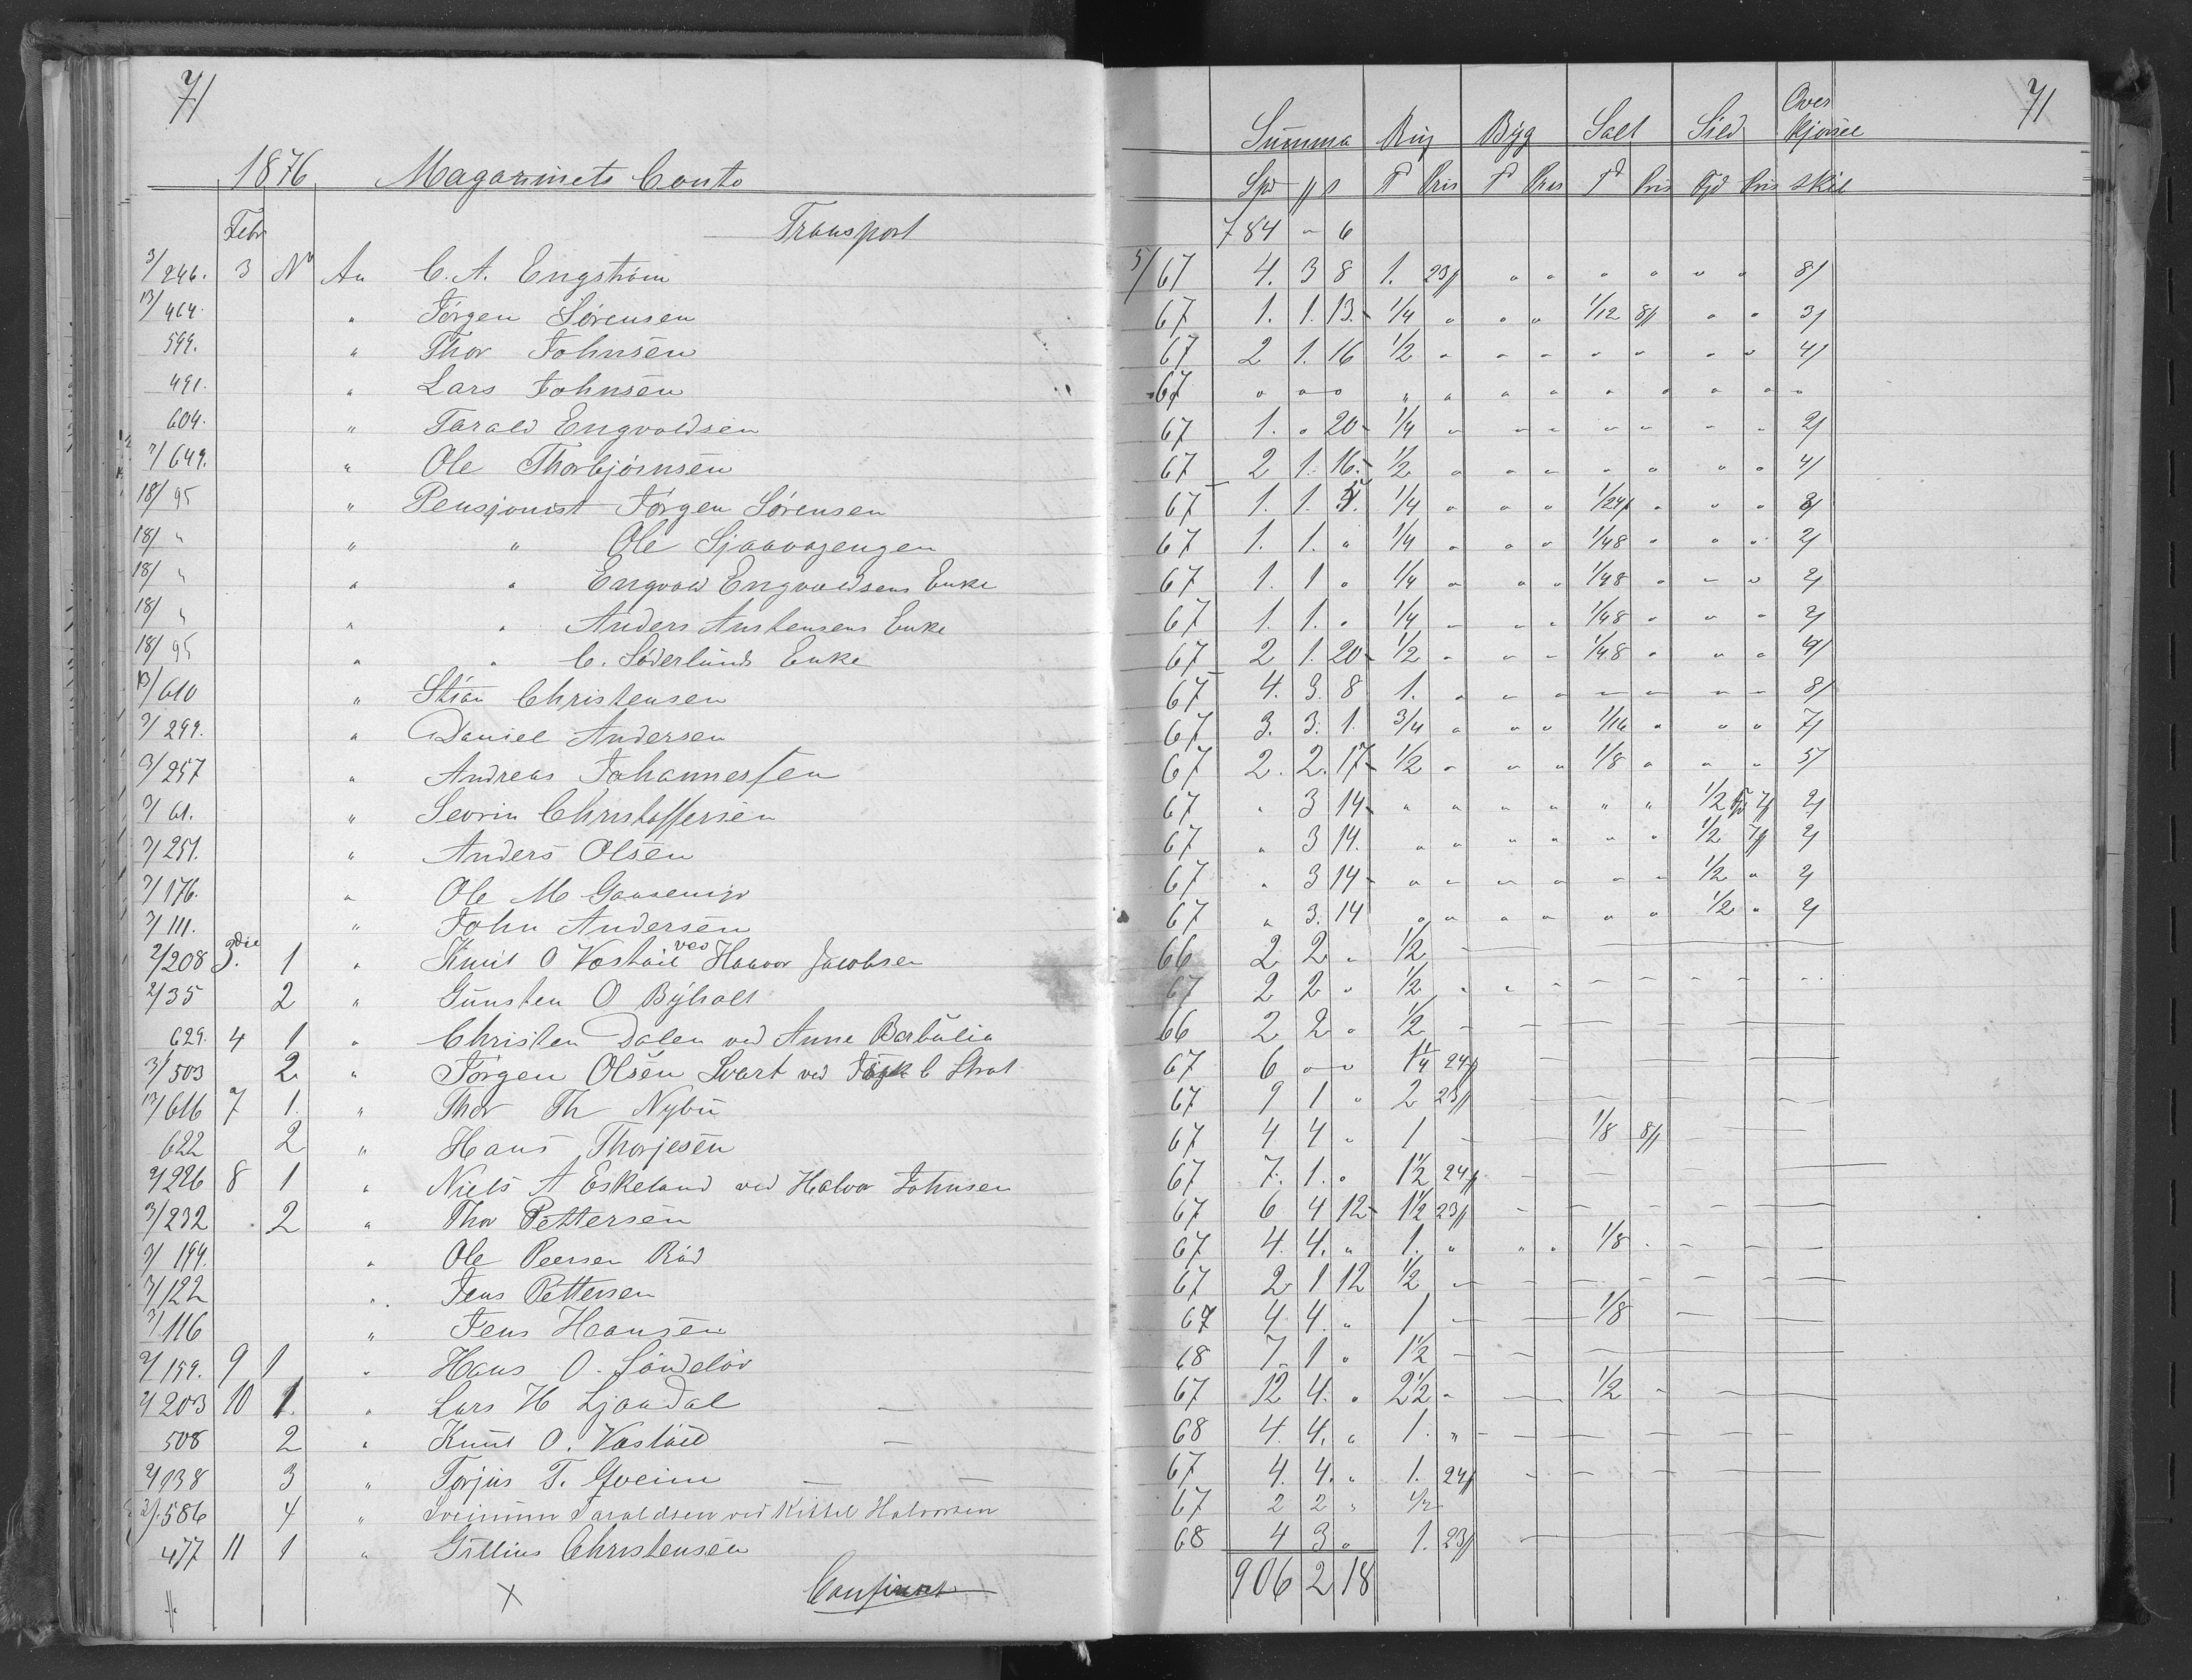 71 71
1876 Magazinets Conto Summa Rug Byg Salt Sild Over kjørsel
Spd ß T Pris T Pris Td Pris Fjd Pris Skil
Febr Transport 784 " 6
3/246. 3 No An C. A. Engstrøm 5/67 4. 3 8 1. 23ß " " " " " " 8/
13/464. " Jørgen Sørensen 67 1. 1. 13. 1/4 " " " 1/12 8ß " " 3/
599. " Thor Johnsen 67 2 1. 16 1/2 " " " " " " " 4/
491. " Lars Johnsen 67 " " " " " " " " " " " "
604. " Tarald Engvoldsen 67 1. " 20 1/4 " " " " " " " 2/
7/649. " Ole Thorbjørnsen 67 2 1. 16. 1/2 " " " " " " " 4/
18/95 " Pensjonist Jørgen Sørensen 67 1. 1. 1/4 " " " 1/24 " " "
18/ " " " Ole 67 1. 1. " 1/4 " " " 1/48 " " " 2/
18/ " " " Engvold Engvoldsens Enke 67 1. 1 " 1/4 " " " 1/48 " " " 2/
18/ " " " Anders Anstensens Enke 67 1. 1. " 1/4 " " " 1/48 " " " 2/
18/95 " " C. Söderlunds Enke 67 2 1. 20 1/2 " " " 1/48 " " "
13/610 " Stian Christensen 67 4. 3. 8 1. " " " " " " " 8/
3/299. " Daniel Andersen 67 3. 3. 1. 3/4 " " " 1/16 " " " 7/
3/257 " Andreas Johannessen 67 2. 2. 17 1/2 " " " 1/8 " " " 5/
3/61. " Sevrin Christoffersen 67 " 3 14 " " " " " " 1/2 7ß 2/
3/251. " Anders Olsen 67 " 3 14. " " " " " " 1/2 7ß 2/
3/176. " Ole M 67 " 3 14 " " " " " " 1/2 " 2/
3/111. " John Andersen 67 " 3. 14 " " " " " " 1/2 " 2/
2/208 3die 1 " Knut O Vastøil ved Haavor Jacobsen 66 2 2 " 1/2
2/35 2 " Gunsten O Byholt 67 2 2 " 1/2 " " " " " " " "
629. 4 1 " Christen Dalen ved Anne Barbulia 66 2 2 " 1/2
3/503 2 " Jørgen Olsen Svart ved C Strat 67 6 " " 1 1/4 24ß
13/616 7 1. " Thor Th Nybu 67 9 1 " 2 23ß
622 2 " Hans Thorjesen 67 4 4 " 1 1/8 8ß
2/226 8 1 " Niels A Eskeland ved Halvor Johnsen 67 7. 1. " 1 1/2 24ß
3/232 2 " Thor Pettersen 67 6 4 12 1 1/2 23ß
3/194. " Ole Peersen Rød 67 4. 4. " 1. " " " 1/8
3/122 " Jens Pettersen 67 2 1 12 1/2
3/116 " Jens Hansen 67 4 4. " 1 1/8
2/159. 9 1 " Hans O. Søndeløv 68 7. 1 " 1 1/2
2/203 10 1. " Lars H Ljaadal 67 12 4. " 2 1/2 " 1/2
508 2 " Knut O. Vastøil 68 4. 4. " 1. "
2/138 3 " Torjus T. Gveim 67 4. 4. " 1. 24ß
2/586 4 " Sveinum Taraldsen ved Kittel Halvorsen 67 2 2 " 1/2
477 11 1 " Gillius Christensen 68 4 3 " 1. 23ß
906 2 18